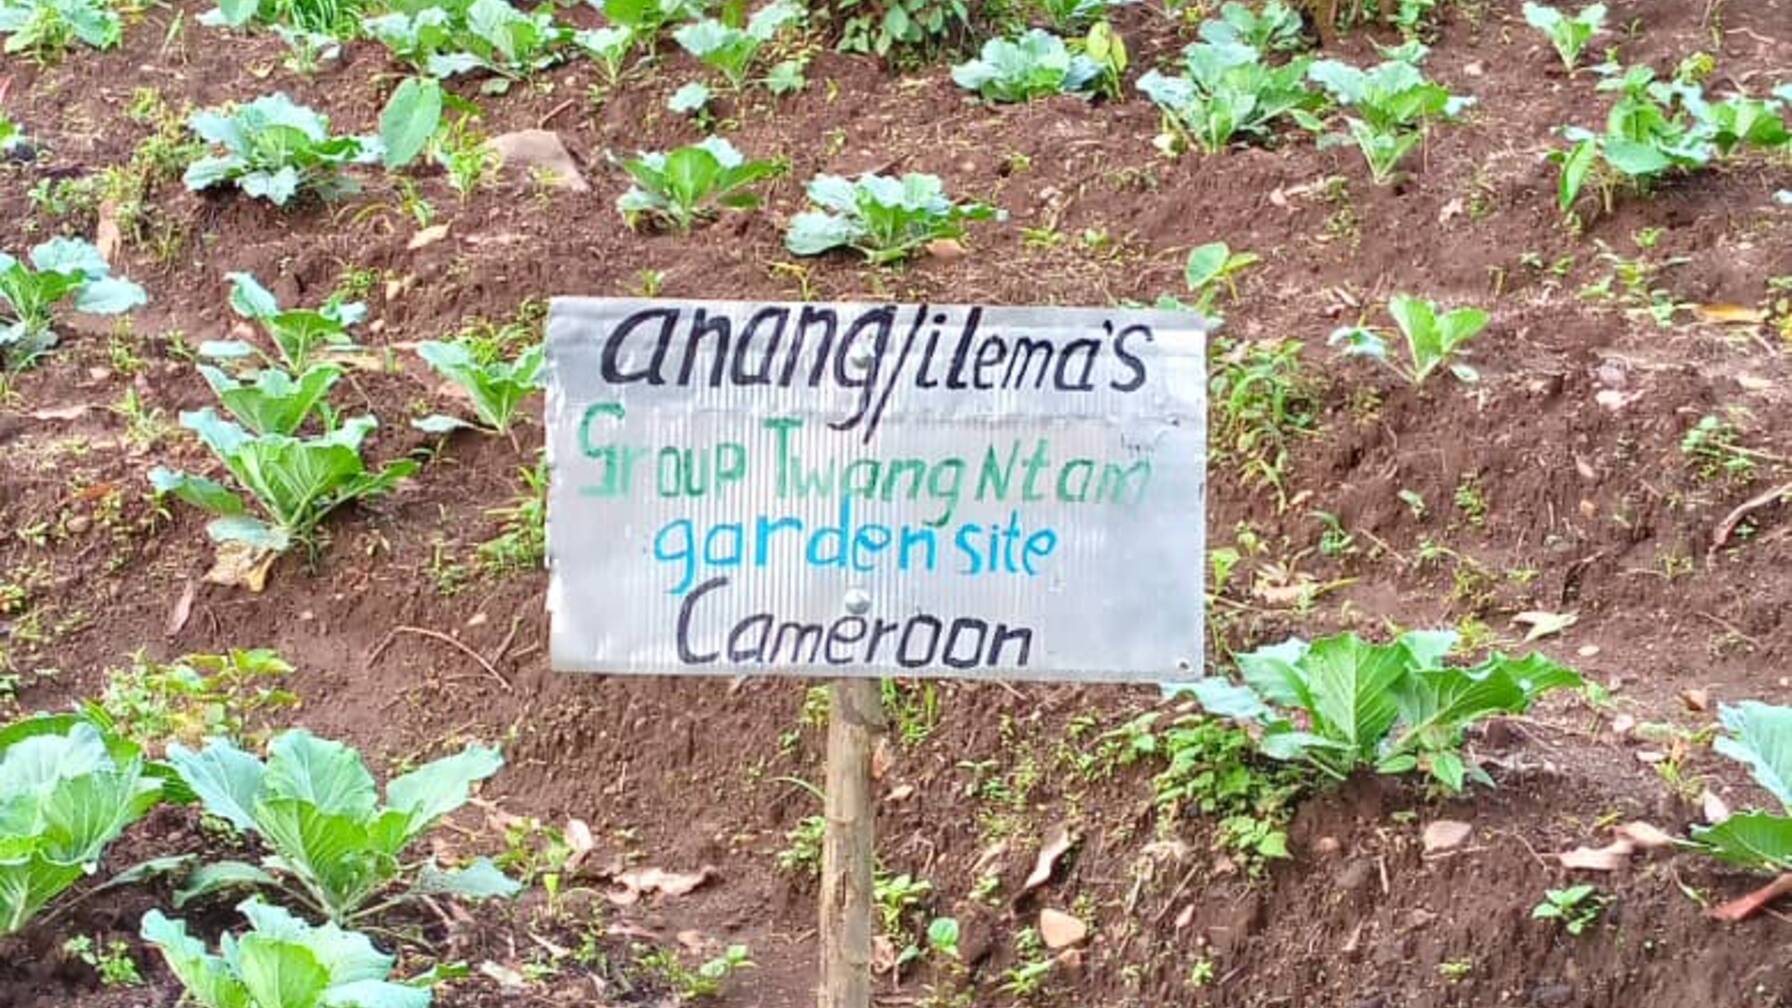 anang/ilema's
Group Twang Ntam
garden site
Cameroon